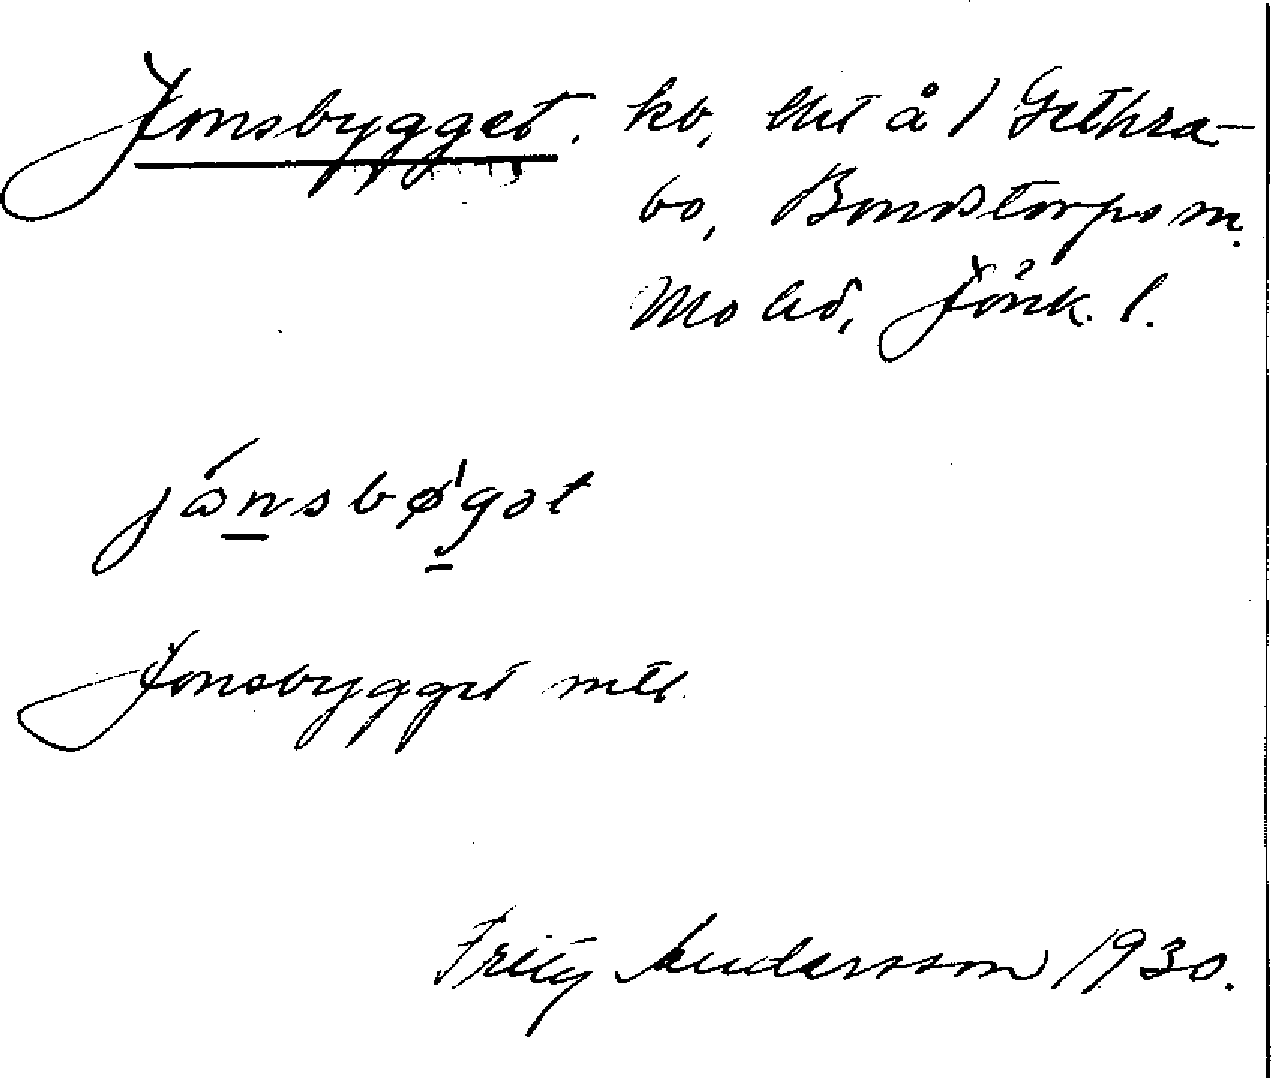 Jonsbygget. hb, lht å 1 Gethra-
bo, Bondstorps sn.
Mo hd, Jönk. l.
jónsbø'gət
Jonsbygget mtl
Fritz Andersson 1930.